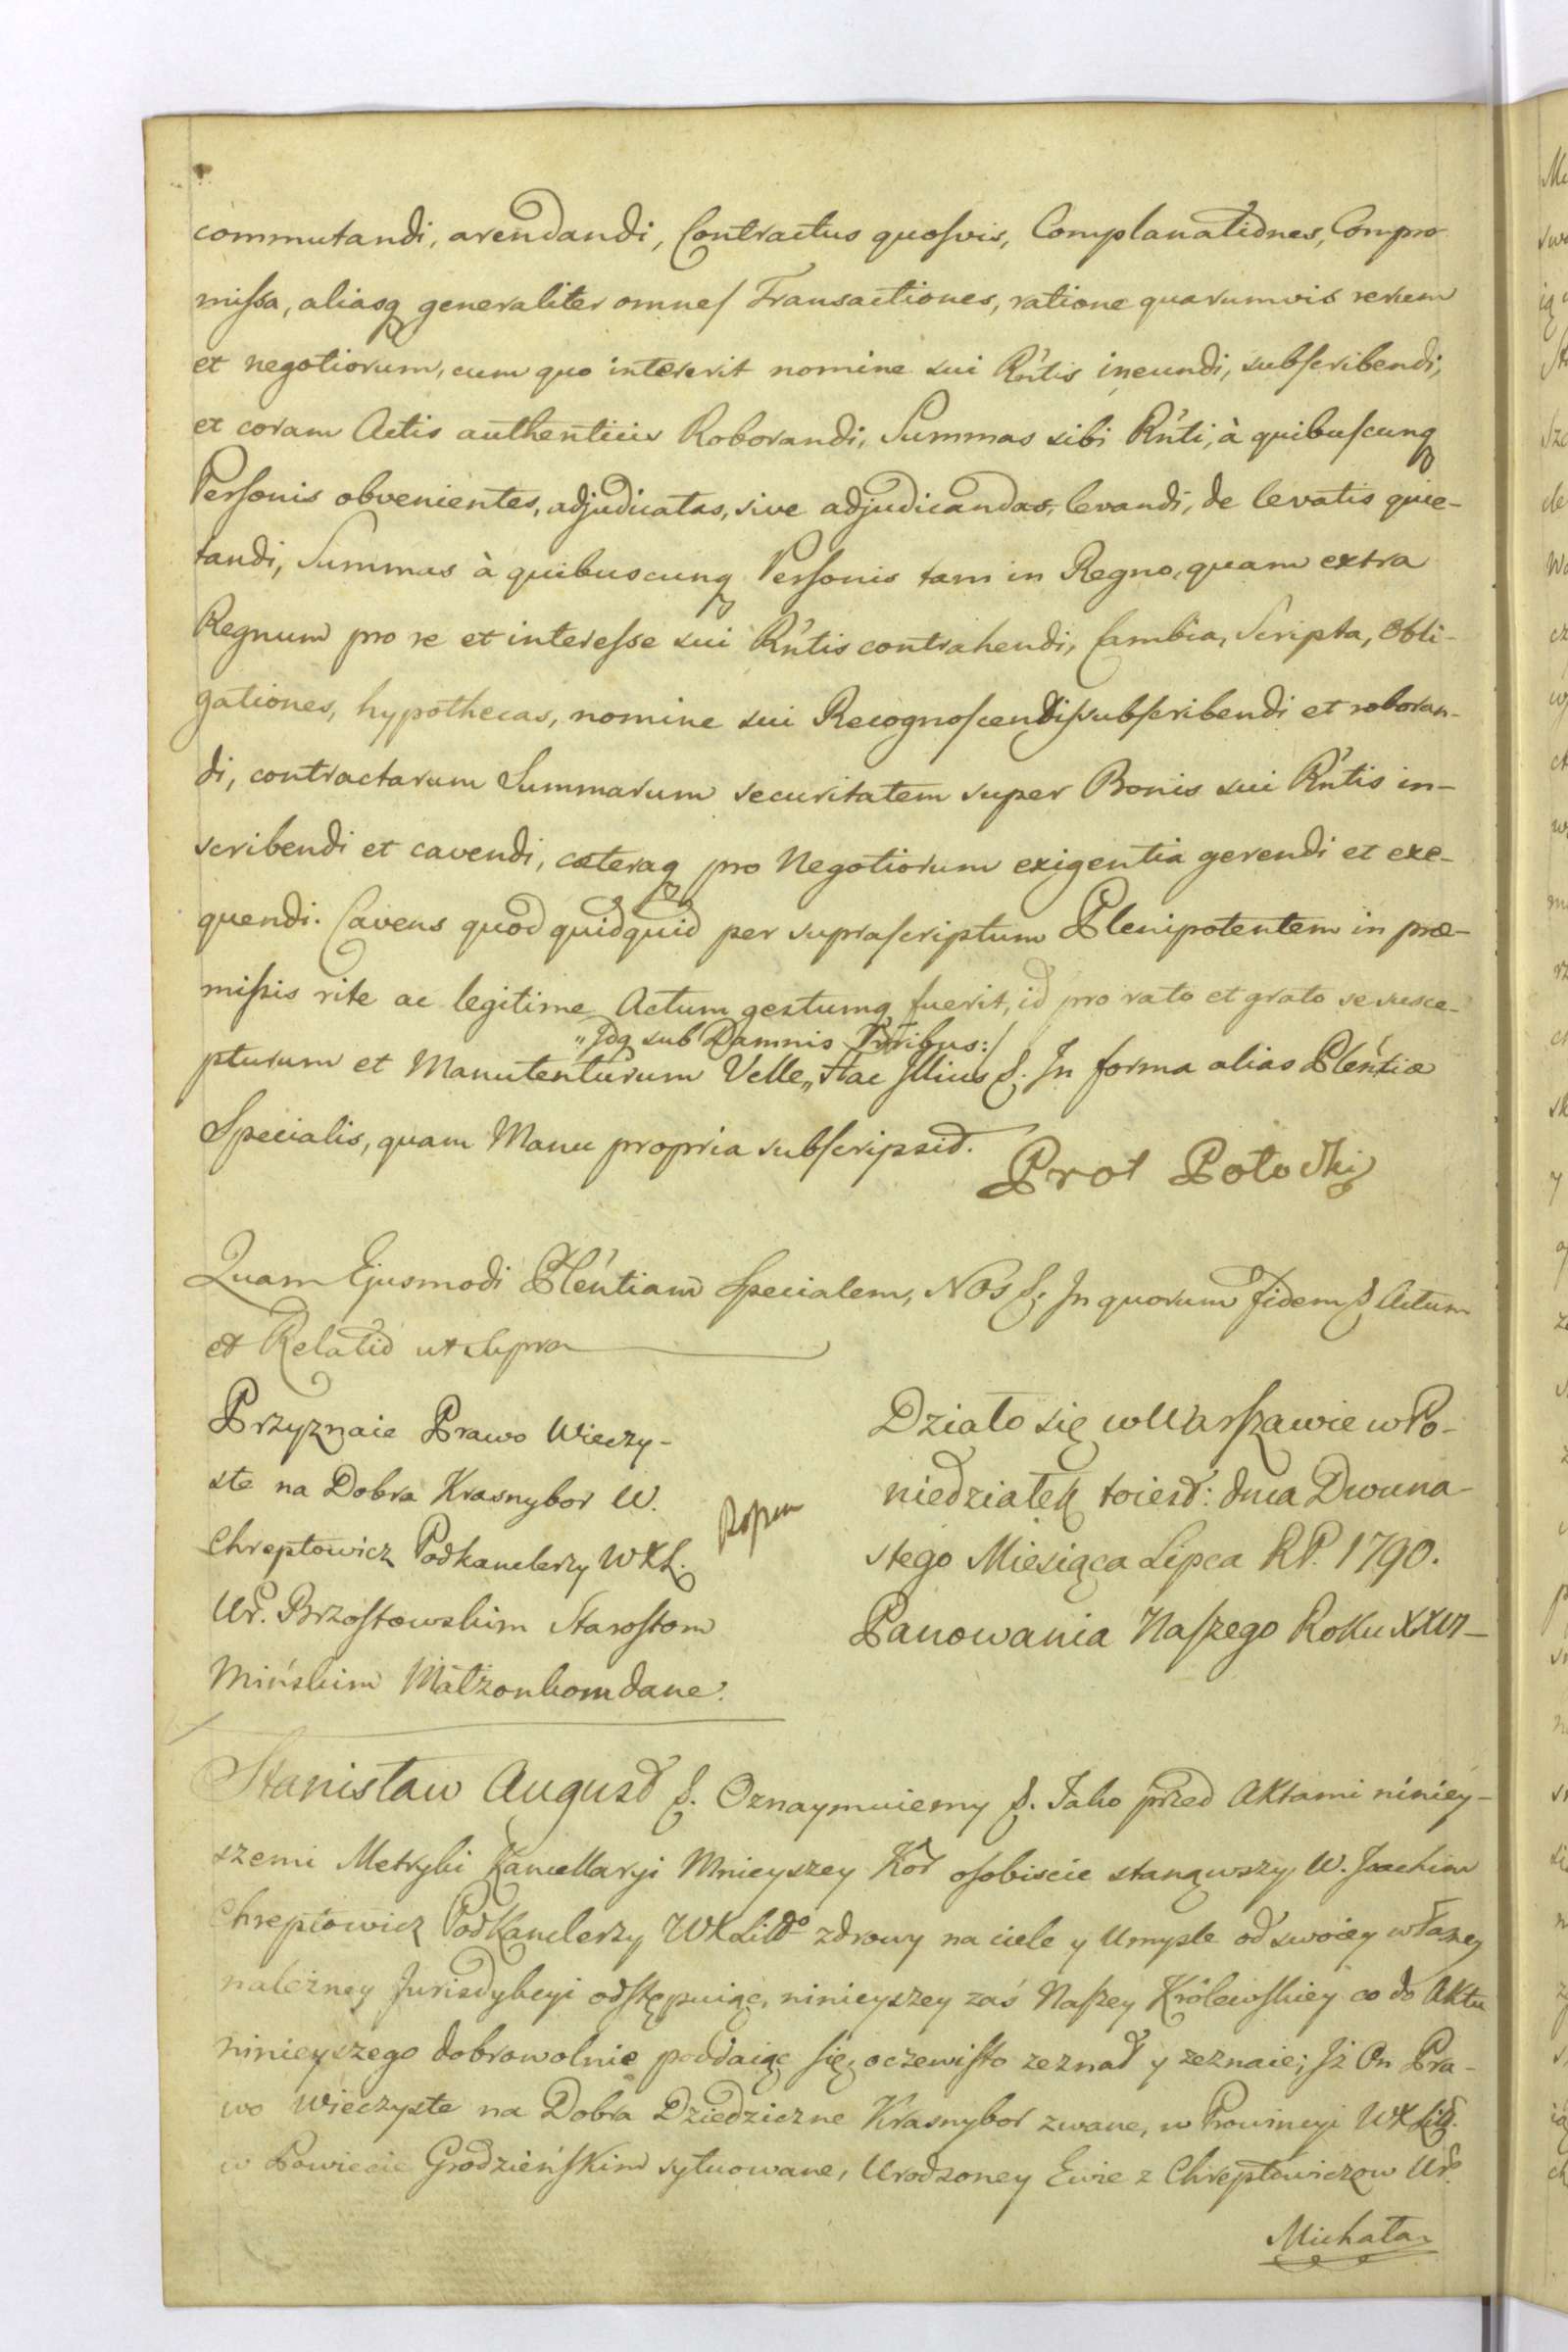 commutandi, arendandi, Contractus quosvis, Complanationes, Compro
missa, aliasq generaliter omnes Transactiones, ratione quarumvis rerum
et negotiorum, cum quo intererit nomine sui Rntis ineundi, subscribendi,
et coram Actis authenticis Roborandi, Summas sibi Rnti, à quibuscunq
Personis obvenientes, adjudicatas, sive adjudicandas, levandi, de levatis quie-
tandi, Summas à quibuscunq Personis tam in Regno, quam extra
Regnum pro re et interesse sui Rntis contrahendi, Cambia, Scripta, Obli-
gationes, hypothecas, nomine sui Recognoscendis subscribendi et roboran-
di, contractarum Summarum securitatem super Bonis sui Rntis in-
scribendi et cavendi, cæteraq pro Negotiorum exigentia gerendi et exe-
quendi. Cavens quod quidquid per suprascriptum Plenipotentem in præ-
missis rite ac legitime Actum gestumq fuerit, id pro rato et grato se susce-
„Idq sub Damnis :/
pturum et Manutenturum Velle„ Hac Illius &. In forma alias Plentiæ
Specialis, quam Manu propria subscripsit.
Prot Potocki
Quam Ejusmodi Plentiam specialem, Nos &. In quorum fidem & Actum
et Relatio ut supra
Przyznaie Prawo Wieczy-
ste na Dobra Krasnybor W.
Chreptowicz Podkanclerzy WXL.
Ur. Brzostowskim Starostom
Mińskim Małżonkom dane.
Działo się w Warszawie w Po-
niedziałek toiest: dnia Dwuna-
stego Miesiąca Lipca RP. 1790.
Panowania Naszego Roku XXVI-
Stanisław August &. Oznaymuiemy &. Iako przed Aktami niniey-
szemi Metryki Kancellaryi Mnieyszey Kor osobiscie stanąwszy W. Joachim
Chreptowicz Podkanclerzy WXLitgo zdrowy na ciele y Umysle od swoiey własney
należney Jurisdykcyi odstępuiąc, ninieyszey zaś Naszey Królewskiey co do Aktu
ninieyszego dobrowolnie poddaiąc się, oczewisto zeznał y zeznaie; Jż On Pra-
wo Wieczyste na Dobra Dziedziczne Krasnybor zwane, w Prowincyi WXLitt.
w Powiecie Grodzieńskim sytuowane, Urodzoney Ewie z Chreptowiczow Uro
Michała